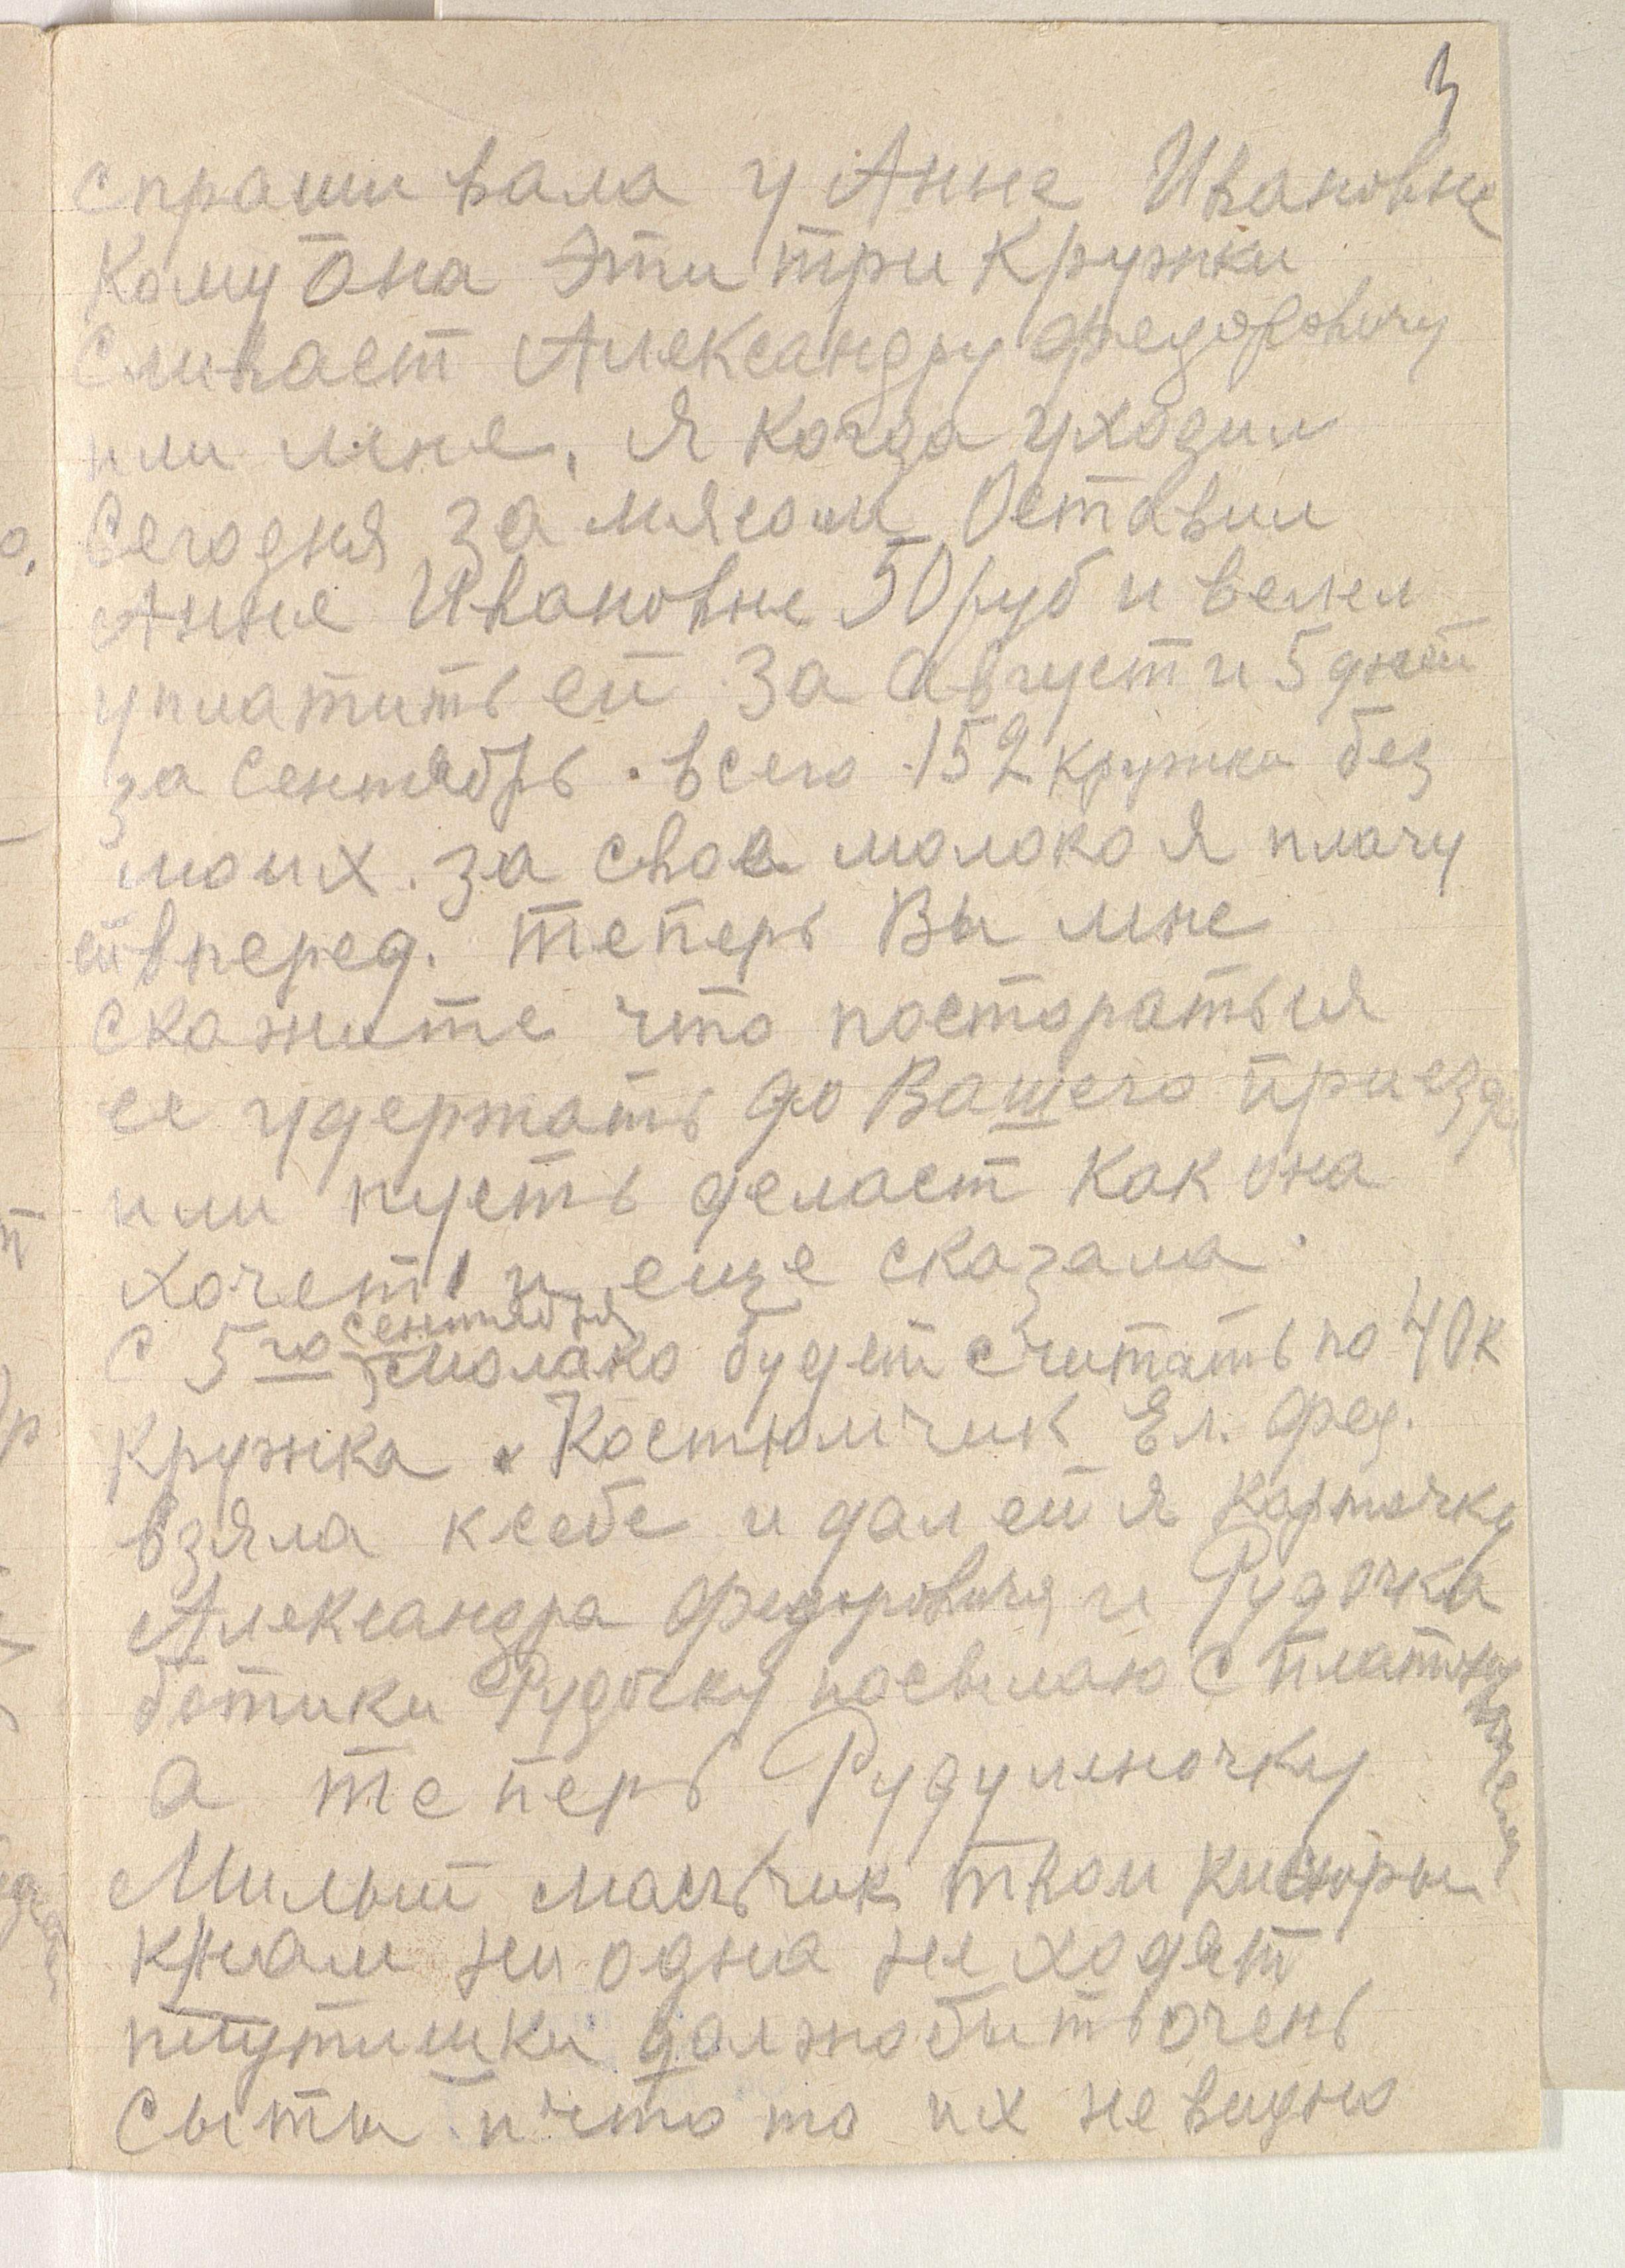 3
спрашивала у Анне Ивановне
кому она эти три кружки
сливает Александру Федоровичу
или мне, я когда уходил
Сегодня за мясом Оставил
Анне Ивановне 50 руб и велел
уплатить ей за Август и 5 дней
за сентябрь. всего 152 кружки без
моих. за свое молоко я плачу
ей вперед. теперь Вы мне
скажите что постораться
ее удержать до Вашего приезда
или пусть делает как она
хочет, и еще сказала.
С 5го сентября молоко будет считать по 40 к
кружка. Костюмчик Ел. Фед.
взяла к себе и дал ей я карточку
Александра Федоровича и Рудочка
ботики Рудочку посылаю с
А теперь Рудулиночку
Милый мальчик твои
к нам ни одна не ходят
должно быть очень
сыты что то их не видно